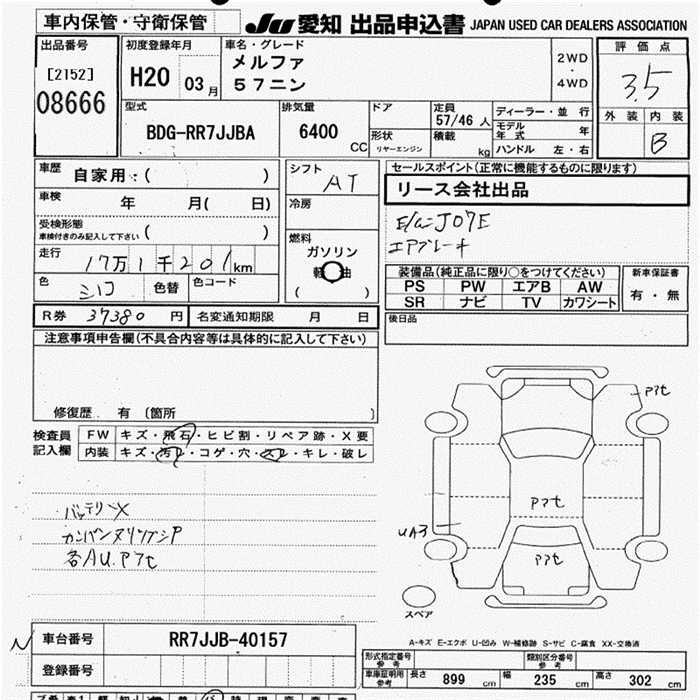 車内保管・守衛保管
JU 愛知 出品申込書 JAPAN USED CAR DEALERS ASSOCIATION
出品番号
[2152]
08666
初度登録年月
H20 03月
車名・グレード
メルファ
57ニン
2WD
・
4WD
評価点
3.5
外装 内装
B
型式
BDG-RR7JJBA
排気量
6400
CC
ドア
形状
リヤーエンジン
定員
57/46人
積載
kg
ディーラー・並行
モデル年式 年
ハンドル 左・右
車歴
自家用・( )
車検 年 月( 日)
受検形態
車検付きのみ記入して下さい ( )
走行
17万1千201km
色 シロ 色替 色コード
シフト
AT
冷房
燃料
ガソリン
軽油
( )
セールスポイント(正常に機能するものに限ります)
リース会社出品
E/G:J07E
エアブレーキ
装備品(純正品に限り○をつけてください)
PS PW エアB AW
SR ナビ TV カワシート
新車保証書
有・無
後日品
R券 37380 円 名変通知期限 月 日
注意事項申告欄(不具合内容等は具体的に記入して下さい)
修復歴 有 〔箇所 〕
検査員
記入欄
FW キズ・飛石・ヒビ割・リペア跡・X要
内装 キズ・汚れ・コゲ・穴・スレ・キレ・破レ
バッテリーX
カンバンヌリツブシP
各AU.Pアセ
Pアセ
Pアセ
Pアセ
UA3
スペア
A-キズ E-エクボ U-凹み W-補修跡 S-サビ C-腐食 XX-交換済
車台番号 RR7JJB-40157
登録番号
形式指定番号
参考
類別区分番号
参考
車庫証明
参考
長さ 899 cm 幅 235 cm 高さ 302 cm